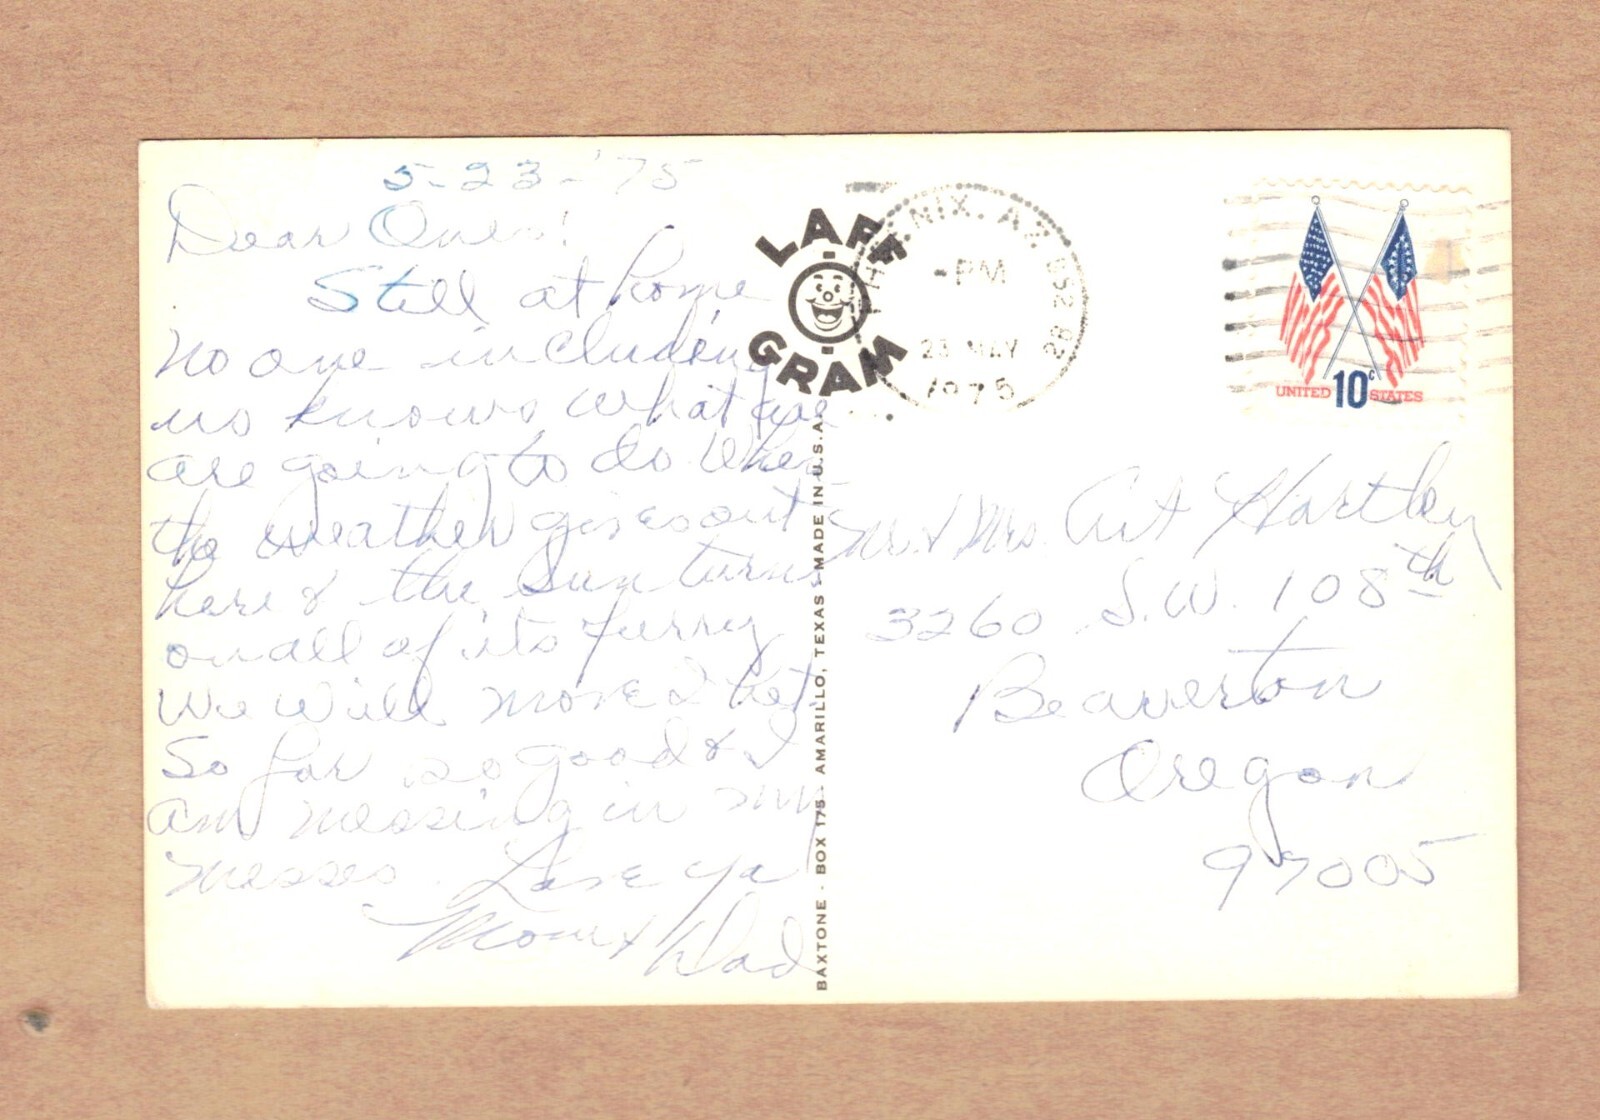 5-23-'75
Dear Ones!
Still at home
no one including
us knows what we
are going to do when
the weather gives out
here & the sun turns
on all of its furry
We will move I bet.
So far so good & I
am messing in my
messes. Love ya
Mom & Dad
LAFF
GRAM
PHOENIX. AZ 852
PM
23 MAY
1975
UNITED 10c STATES
BAXTONE · BOX 175 · AMARILLO, TEXAS · MADE IN U.S.A.
Mr. & Mrs. Art Hartley
3260 S.W. 108th
Beaverton
Oregon
97005